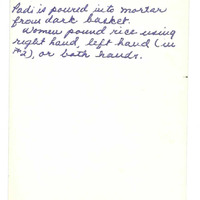 Padi is poured into mortar
from dark basket.
Women pound rice using
right hand, left hand (in
#2), or both hands.